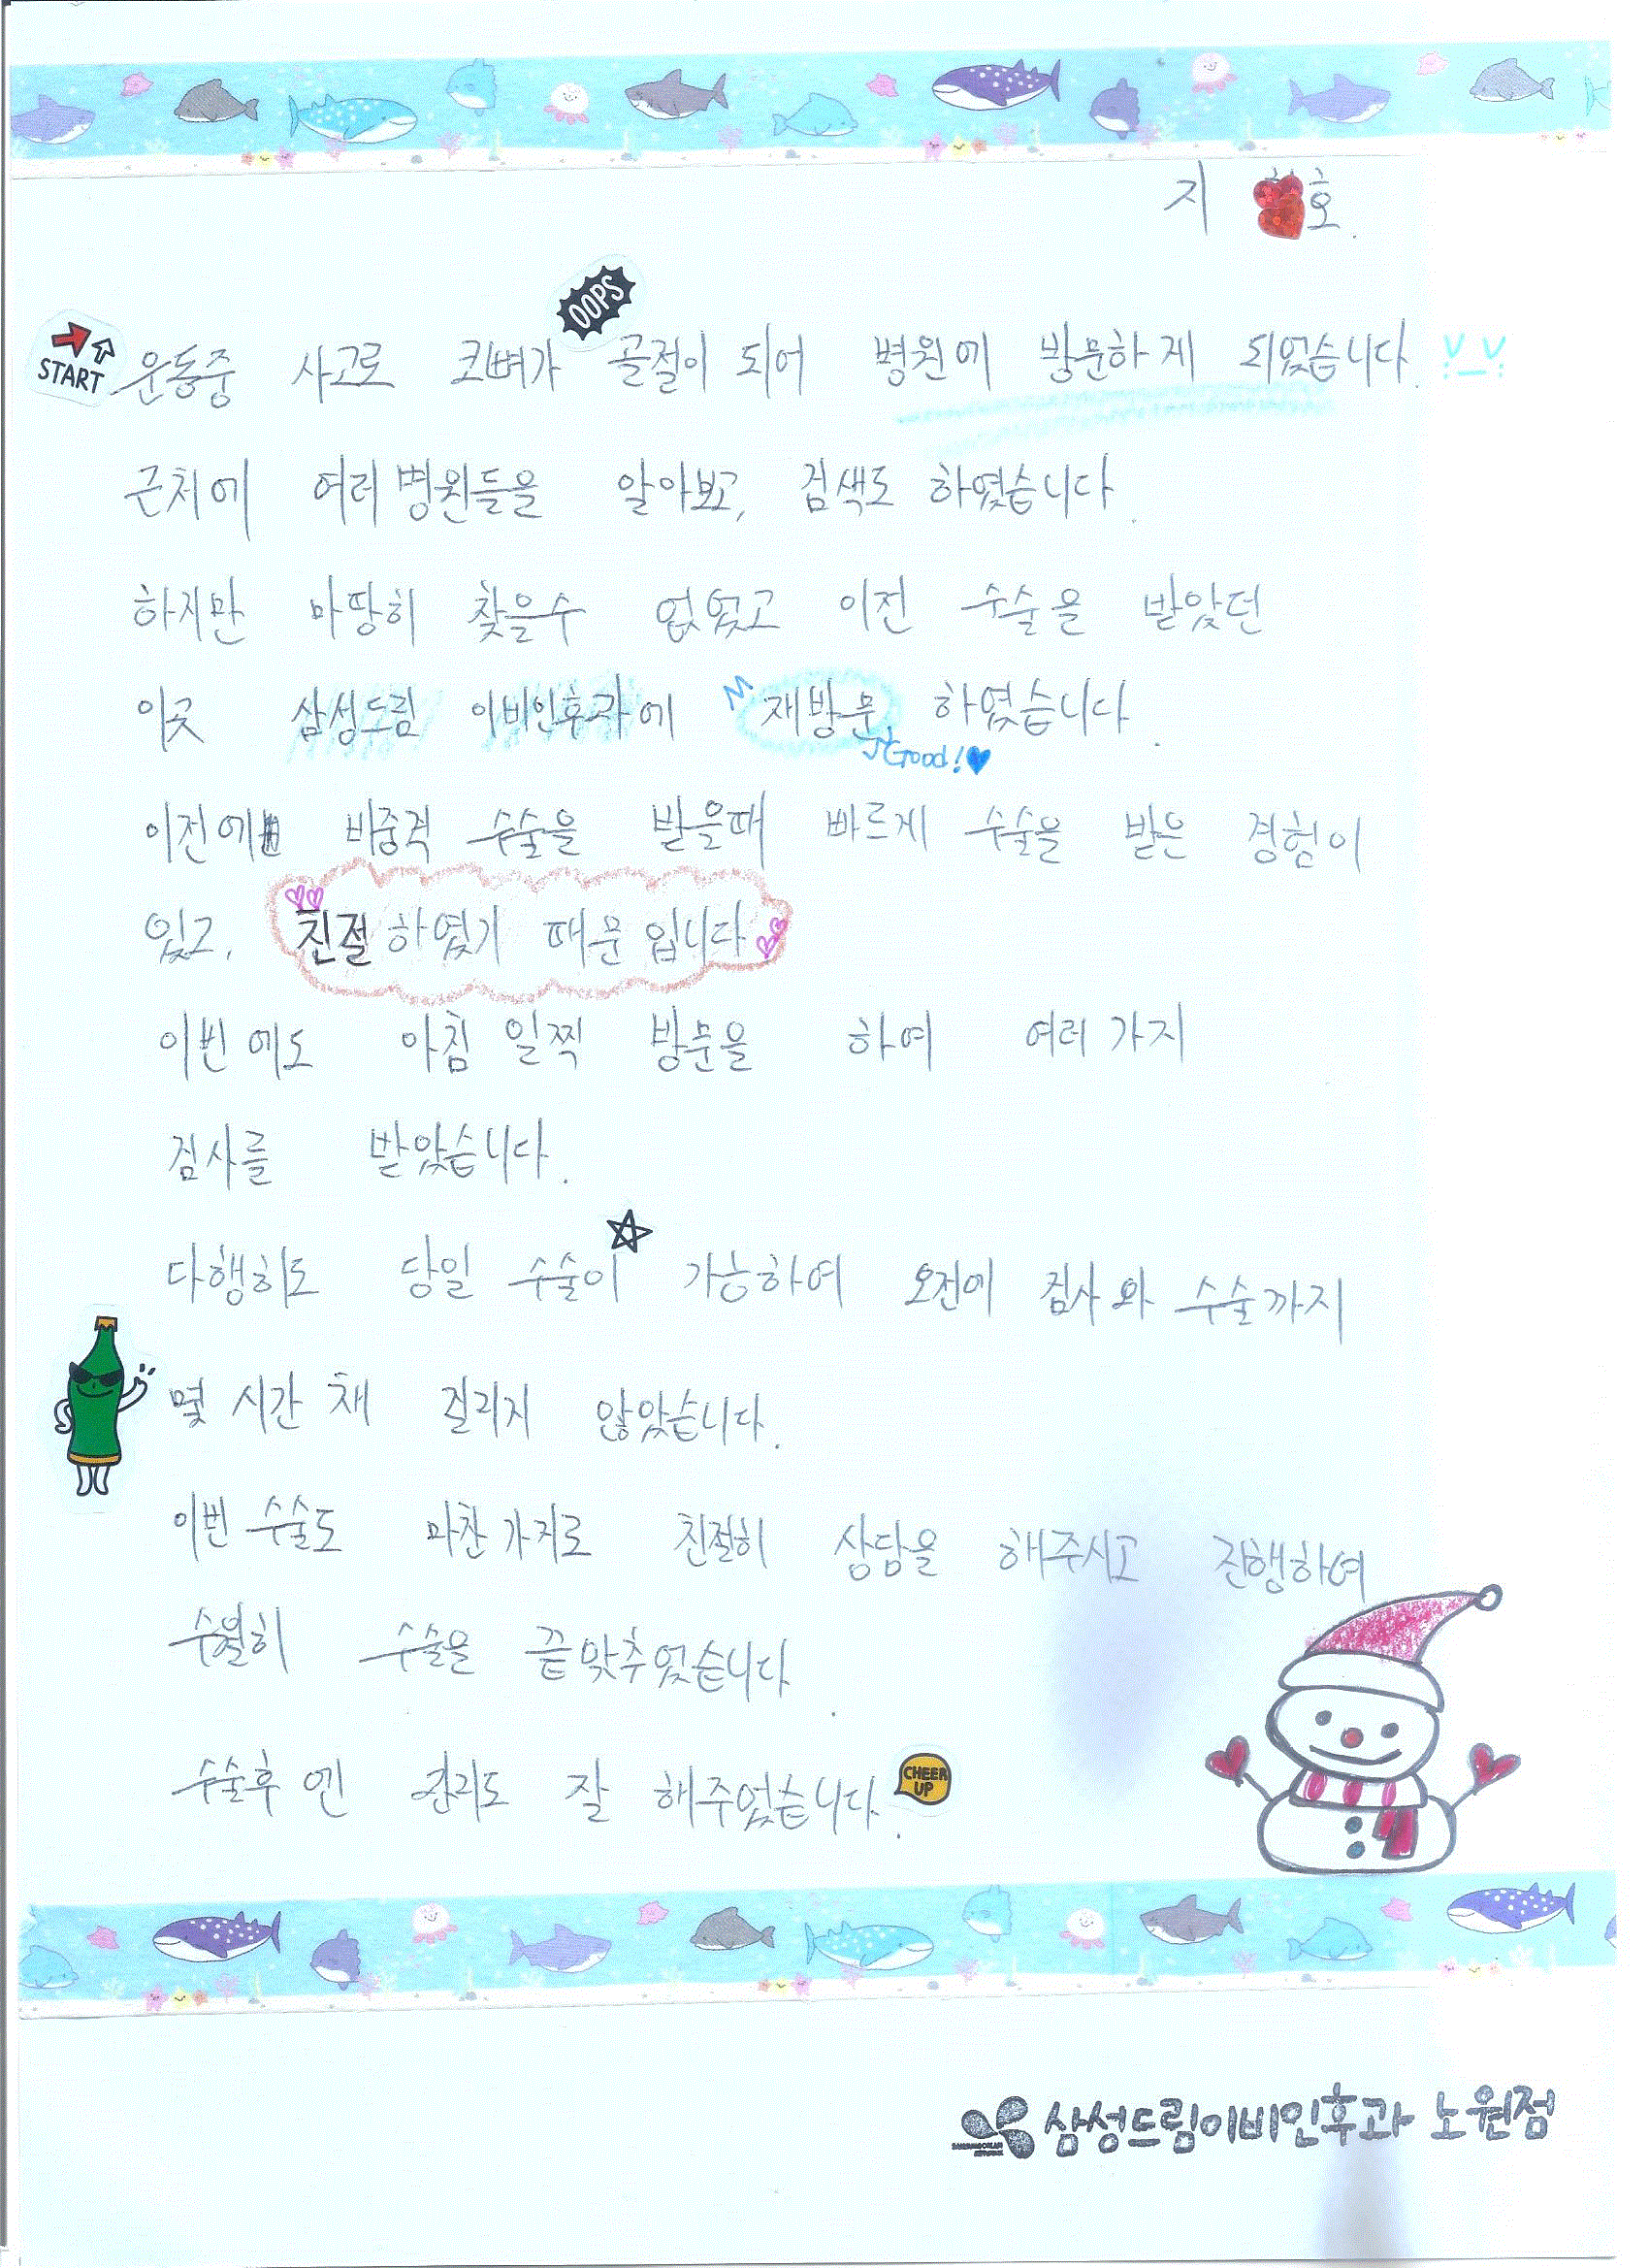 지 호.
OOPS
START
운동중 사고로 코뼈가 골절이 되어 병원에 방문하게 되었습니다.
근처에 여러 병원들을 알아보고, 검색도 하였습니다.
하지만 마땅히 찾을수 없었고 이전 수술을 받았던
이곳 삼성드림 이비인후과에 재방문 하였습니다.
Good!
이전에 비중격 수술을 받을때 빠르게 수술을 받은 경험이
있고, 친절하였기 때문입니다
이번에도 아침 일찍 방문을 하여 여러가지
검사를 받았습니다.
다행히도 당일 수술이 가능하여 오전에 검사와 수술까지
몇 시간 채 걸리지 않았습니다.
이번 수술도 마찬가지로 친절히 상담을 해주시고 진행하여
수월히 수술을 끝맞추었습니다.
수술후엔 관리도 잘 해주었습니다.
CHEER UP
삼성드림이비인후과 노원점